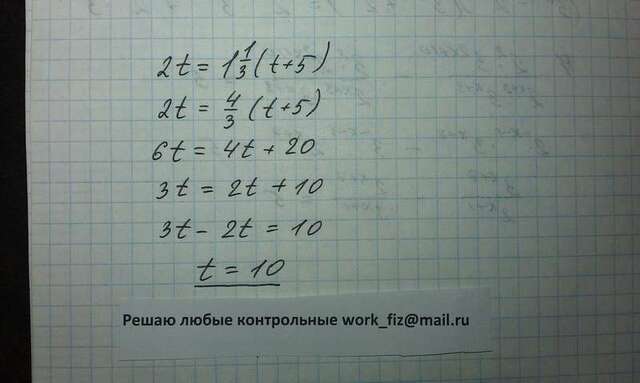 2t = 1 1/3 (t+5)
2t = 4/3 (t+5)
6t = 4t + 20
3t = 2t + 10
3t - 2t = 10
t = 10
Решаю любые контрольные work_fiz@mail.ru